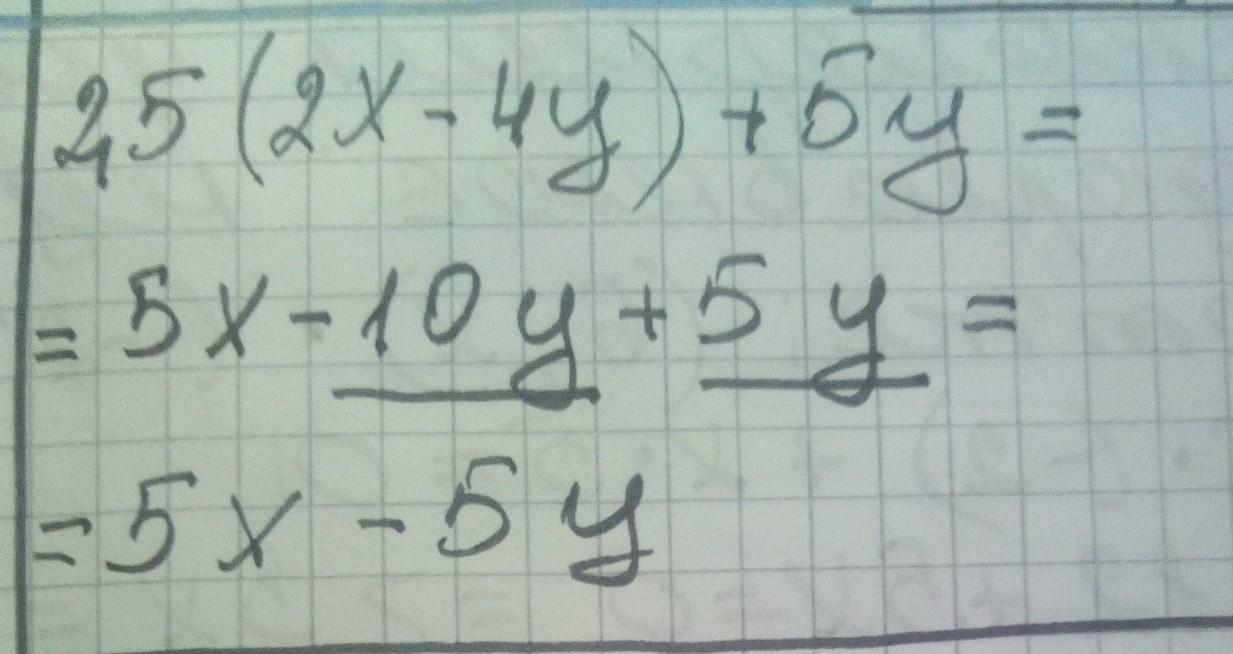 2,5(2x-4y)+5y=
=5x-10y+5y=
=5x-5y